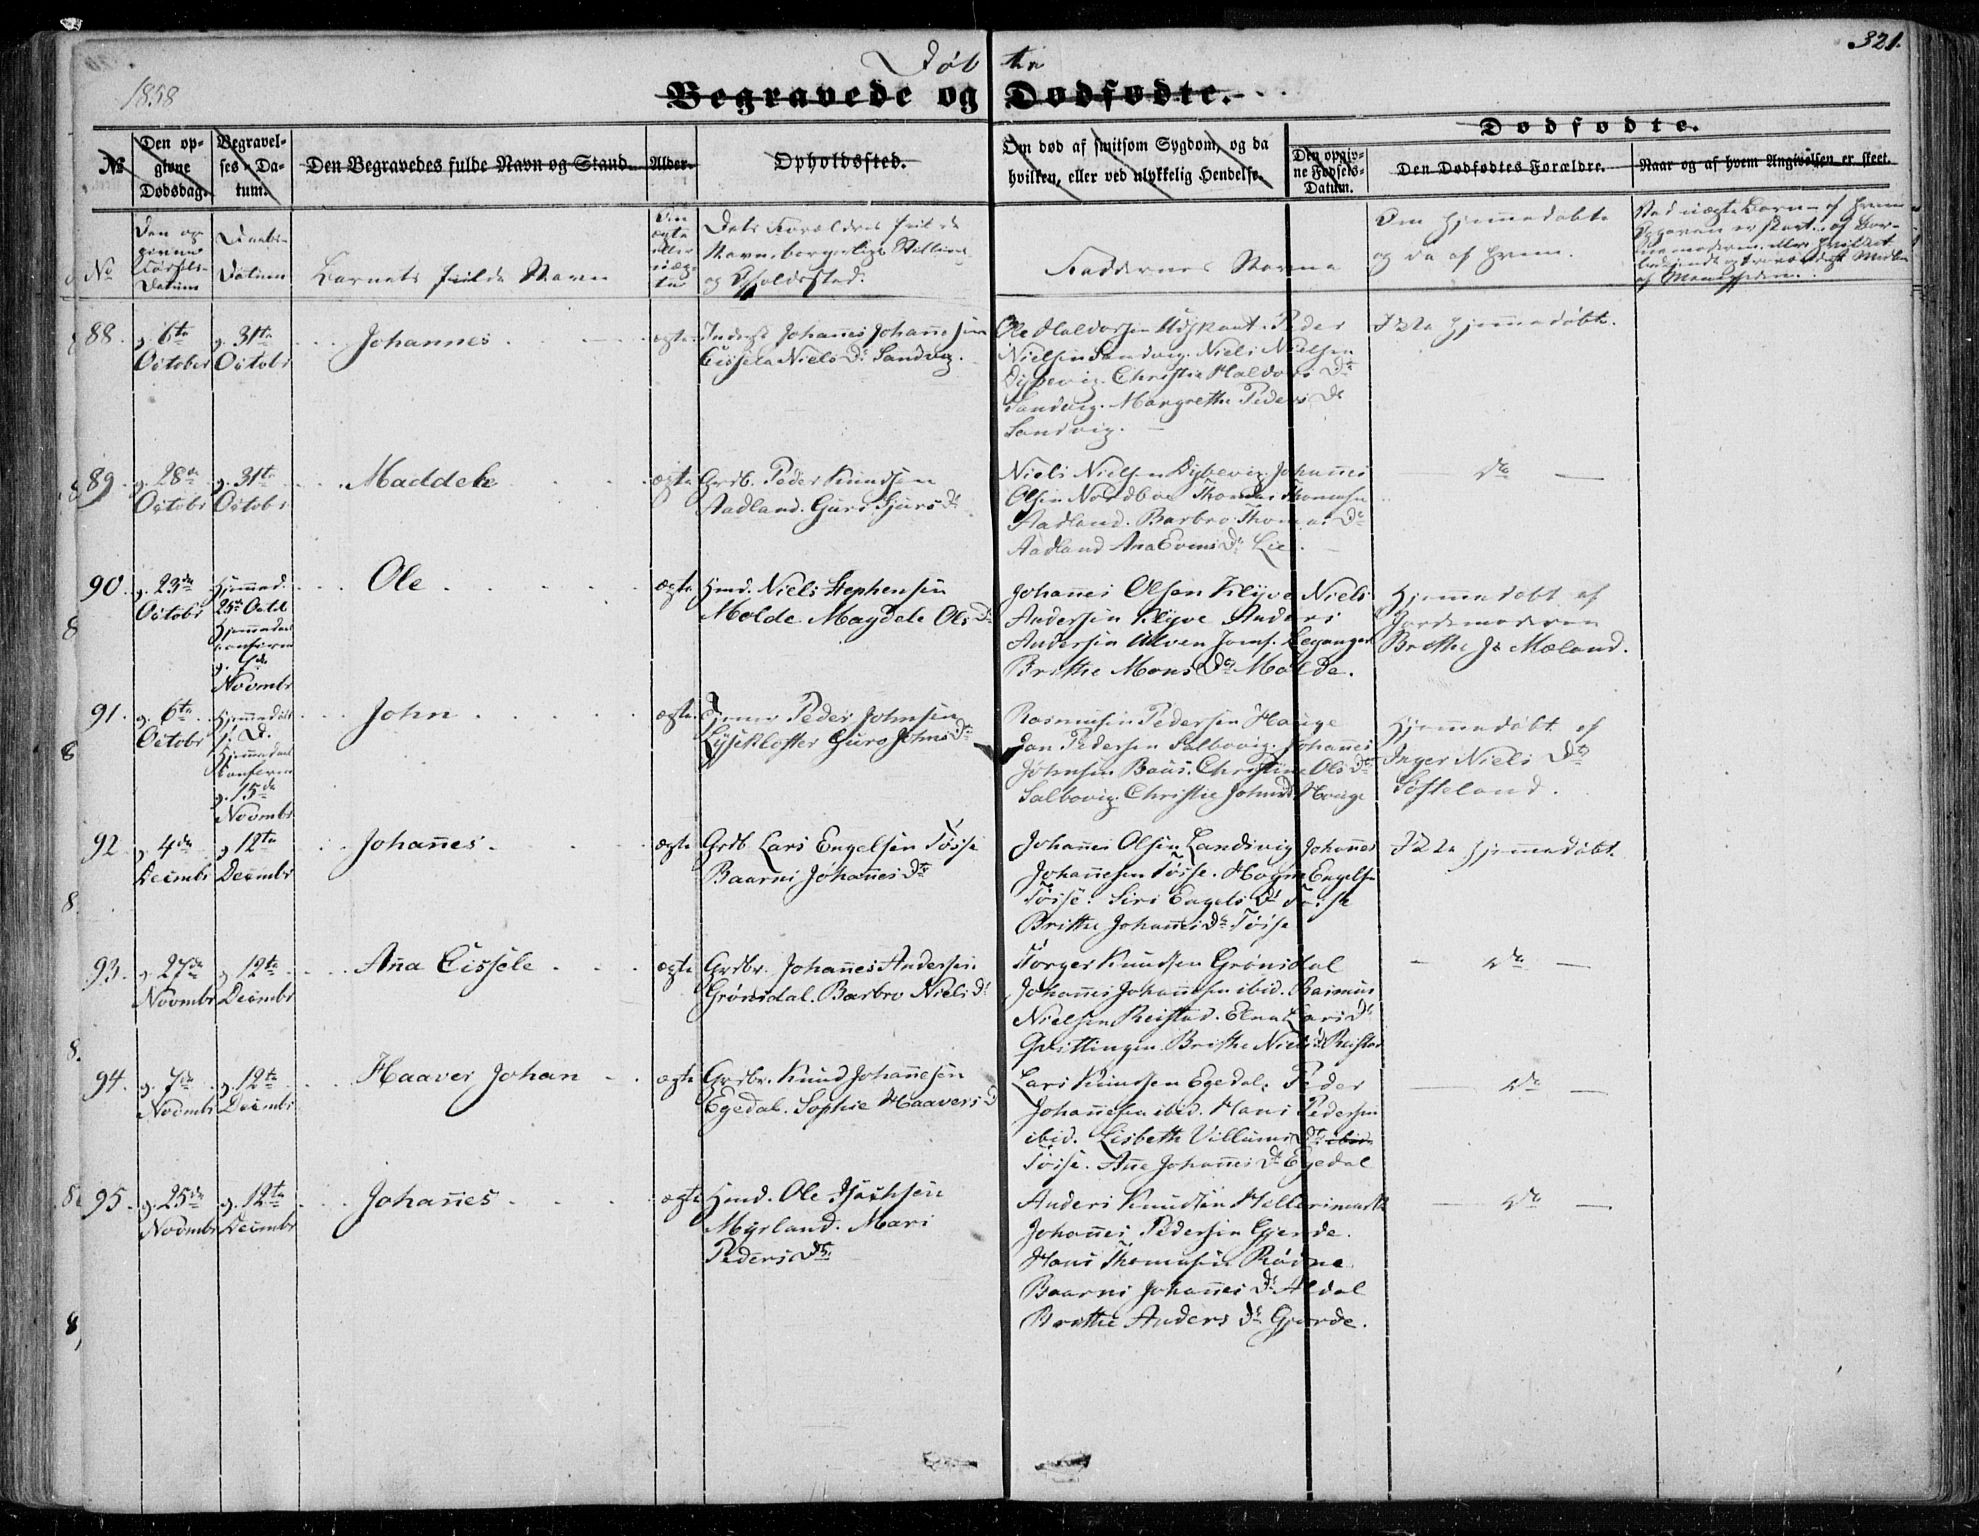 321.
1858
Døbte
Begravede og Dødfødte.
Dødfødte.
№
Den opgivne Dødsdag.
Begravelses-Datum.
Den Begravedes fulde Navn og Stand.
Alder.
Opholdssted.
Om død af smitsom Sygdom, og da
hvilken, eller ved ulykkelig Hendelse.
Den opgivne Fødsels-Datum.
Den Dødfødtes Forældre.
Naar og af hvem Angivelsen er skeet.
No
Den opgivne Fødsels-Datum
Daabs-Datum
Barnets fulde Navn
Om ægte eller uægte
Dets Forældres fulde
Navn borgerlige Stilling
og Opholdssted.
Faddernes Navne
Om hjemmedøbte
og da af hvem.
88. g. 6te October
g. 31te Octobr
Johannes
ægte
Inderst Johannes Johannesen
Cissela Niels Dr Sandvig.
Ole Haldorsen Peder
Nielsen Sandvig. Niels Nielsen
Dybevig. Christie Haldors Dr
Sandvig. Margrethe Peders Dr
Sandvig.
Ikke hjemmedøbt.
89. g. 28de Octobr
g. 31te Octobr
Maddele
ægte
Grdb. Peder Knudsen
Aadland. Guri Sjurs Dr
Niels Nielsen Dybevig. Johannes
Olsen Nordbøe Thomas Thomasen
Aadland. Barbro Thomas Dr
Aadland Ana Evens Dr Lie.
— do —
90. g. 23de Octobr
Hjemmed. 25de Octb
Hjemmedaab
confirm
g. 1ste
Novmbr
Ole
ægte
Hmd. Niels Stephensen
Molde Magdele Ols Dr
Johannes Olsen Klyve Niels
Andersen Klyve Anders
Andersen Ulven Jomf. Leganger
Brithe Mons Dr Molde.
Hjemmedøbt af
Jordemoderen
Brithe Js Mæland.
91. g. 6te Octobr
Hjemmedøbt
s. D.
Hjemmedaab
Confirm
g. 15de
Novmbr
John
ægte
Peder Johnsen
Lysekloster Guro Johns Dr
Rasmus Pedersen Hauge
Jan Pedersen Salbovig. Johannes
Johnsen Baus. Christine Ols Dr
Salbovig. Christie Johns Dr Hauge
Hjemmedøbt af
Inger Niels Dr
Søfteland.
92 g. 4de Decmbr
g 12te Decmbr
Johannes.
ægte
Grdb Lars Engelsen Tøsse
Baarni Johannes Dr
Johannes Olsen Landsvig Johannes
Johannesen Tøsse. Hogne Engelsen
Tøsse. Siri Engels Dr Tøsse
Brithe Johannes Dr Tøsse
Ikke hjemmedøbt.
93. g. 27de Novmbr
g 12te Decmbr
Ana Cissele
ægte
Grdbr. Johannes Andersen
Grønsdal. Barbro Niels Dr
Torger Knudsen Grønsdal
Johannes Johannesen ibid. Rasmus
Nielsen Reistad. Elna Lars Dr
Gvittingen Brithe Niels Dr Reistad
— do —
94. g. 7de Novmbr
g. 12te Decmbr
Haaver Johan
ægte
Grdbr. Knud Johannesen
Egedal. Sophie Haavers D
Lars Knudsen Egedal. Peder
Johannesen ibid. Hans Pedersen
ibid. Lisbeth Villums Dr ibid
Tøsse. Ane Johannes Dr Egedal
— do —
95. g. 25de Novmbr
g. 12te Decmbr
Johannes
ægte
Hmd. Ole Isachsen
Myrland. Mari
Peders Dr
Anders Knudsen Hellesmark
Johannes Pedersen Gjerde.
Hans Thomasen Rødne
Baarni Johannes Dr Aldal
Brithe Anders Dr Gjerde.
— do —